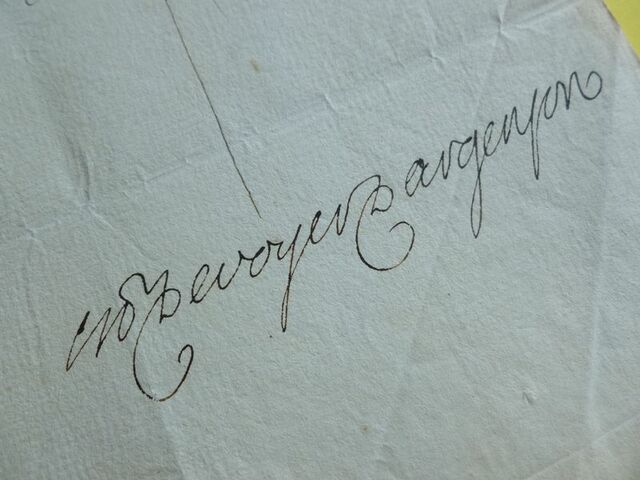 De voyer D argenson